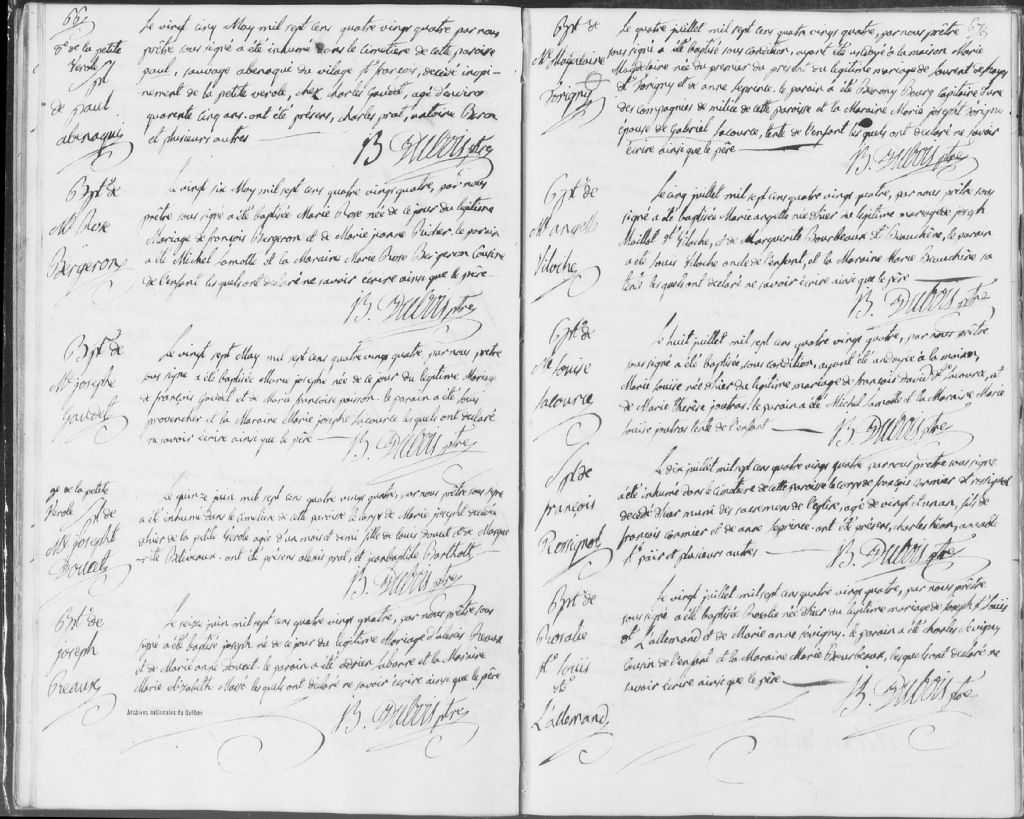 66
8e de la petite
verole
Spt
de paul
abenaqui
Le vingt cinq May mil sept cens quatre vingt quatre par nous
prêtre sous signé a été inhumé dans le cimetiere de cette paroisse
paul, sauvage abenaqui du vilage st françois, decedé inopi-
nement de la petite verole, chez charles Gaudet, agé d'environ
quarante cinq ans. ont été présens, charles prat, antoine
et plusieurs autres
B. Dubois ptre
Bpt de
Mie Rose
Bergeron
Le vingt six May mil sept cens quatre vingt quatre, par nous
prêtre sous signé a été baptisée Marie Rose née de ce jour du legitime
Mariage de françois Bergeron et de Marie jeanne le parain
a été Michel Lamotte et la Maraine Marie Rose Bergeron Cousine
de l'enfant lesquels ont declaré ne savoir ecrire ainsi que le père
B. Dubois ptre
Bpt de
Mie josephe
Gaudet
Le vingt sept May mil sept cens quatre vingt quatre, par nous prêtre
sous signé a été baptisée Marie josephe née de ce jour du legitime Mariage
de françois Gaudet et de Marie françoise poisson. le parain a été Louis
provencher et la Maraine Marie josephe Lacource lesquels ont declaré
ne savoir écrire ainsi que le père
B. Dubois ptre
9e de la petite
Verole
Spt de
Mie josepht
Doucet
Le quinze juin mil sept cens quatre vingt quatre, par nous prêtre sous signé
a été inhumé dans le cimetiere de cette paroisse le corps de Marie josepht decedée
d'hier de la petite verole agée d'un mois et demi fille de Louis Doucet et de Margue
-rite ont été présens alexis prat, et jeanbaptiste
B. Dubois ptre
Bpt de
joseph
Le seize juin mil sept cens quatre vingt quatre, par nous prêtre sous
signé a été baptisé joseph né de ce jour du legitime Mariage d'alexis
et de Marie anne doucet. le parain a été adrien labarre et la Maraine
Marie elizabeth Massé lesquels ont déclaré ne savoir écrire ainsi que le père
B. Dubois ptre
Archives nationales du Québec
67
Bpt de
Mie Magdelaine
Sevigny
Le quatre juillet mil sept cens quatre vingt quatre, par nous prêtre
sous signé a été baptisé sous condition, ayant été ondoyé à la maison Marie
Magdelaine née du premier du présent du legitime mariage de Laurent
st Sevigny et de anne leprince. le parain a été Bourg Capitaine d'une
des compagnies de milice de cette paroisse et la Maraine Marie josepht Sevigny
épouse de Gabriel Lacource, tente de l'enfant lesquels ont declaré ne savoir
écrire ainsi que le père
B. Dubois ptre
Bpt de
Mie angelle
Viloche
Le cinq juillet mil sept cens quatre vingt quatre, par nous prêtre sous
signé a été baptisée Marie angelle née d'hier du legitime mariage de joseph
Maillot st Viloche, et de Marguerite Bourbeaux st Beauchêne, le parain
a été Louis Viloche oncle de l'enfant, et la Maraine Marie Beauchêne sa
tente lesquels ont declaré ne savoir écrire ainsi que le père
B. Dubois ptre
Bpt de
Mie Louise
Lacource
Le huit juillet mil sept cens quatre vingt quatre, par nous prêtre
sous signé a été baptisée sous condition, ayant été ondoyée à la maison,
Marie Louise née d'hier du legitime mariage de françois david st Lacource, et
de Marie Therèse joutras. le parain a été Michel Lamotte et la Maraine Marie
Louise joutras tente de l'enfant
B. Dubois ptre
Spt de
françois
Rossignol
Le dix juillet mil sept cens quatre vingt quatre par nous prêtre sous signé
a été inhumé dans le cimetiere de cette paroisse le corps de françois Cormier st rossignol
decedé d'hier muni des sacremens de l'église, agé de vingt et un an, fils de
françois Cormier et de anne leprince. ont été présens, charles
st pair et plusieurs autres
B. Dubois ptre
Bpt de
Rosalie
st Louis
st
L'allemand
Le vingt juillet mil sept cens quatre vingt quatre, par nous prêtre
sous signé a été baptisée Rosalie née d'hier du legitime mariage de joseph st Louis
st L'allemand et de Marie anne sevigny. le parain a été charles sevigny
Cousin de l'enfant et la Maraine Marie Bourbeaux, lesquels ont declaré ne
savoir écrire ainsi que le père
B. Dubois ptre